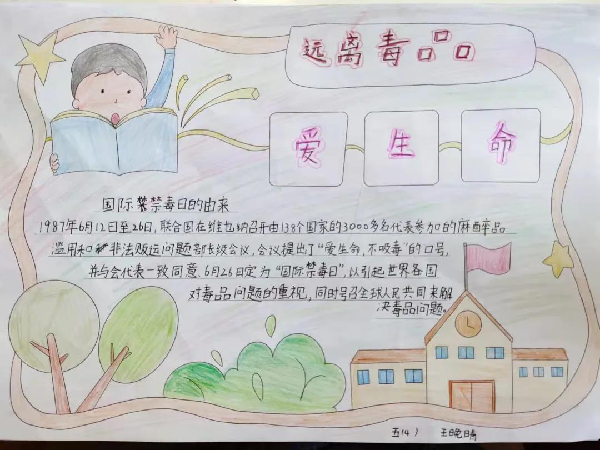 远离毒品
爱生命
国际禁毒日的由来
1987年6月12日至26日,联合国在维也纳召开由138个国家的3000多名代表参加的麻醉品
滥用和非法贩运问题部长级会议,会议提出了"爱生命,不吸毒"的口号,
并与会代表一致同意6月26日定为"国际禁毒日",以引起世界各国
对毒品问题的重视,同时号召全球人民共同来解
决毒品问题。
五(4) 王晚晴